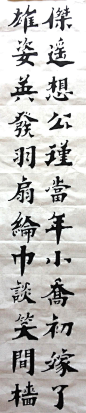 傑遥想公瑾當年小喬初嫁了
雄姿英發羽扇綸巾談笑間檣